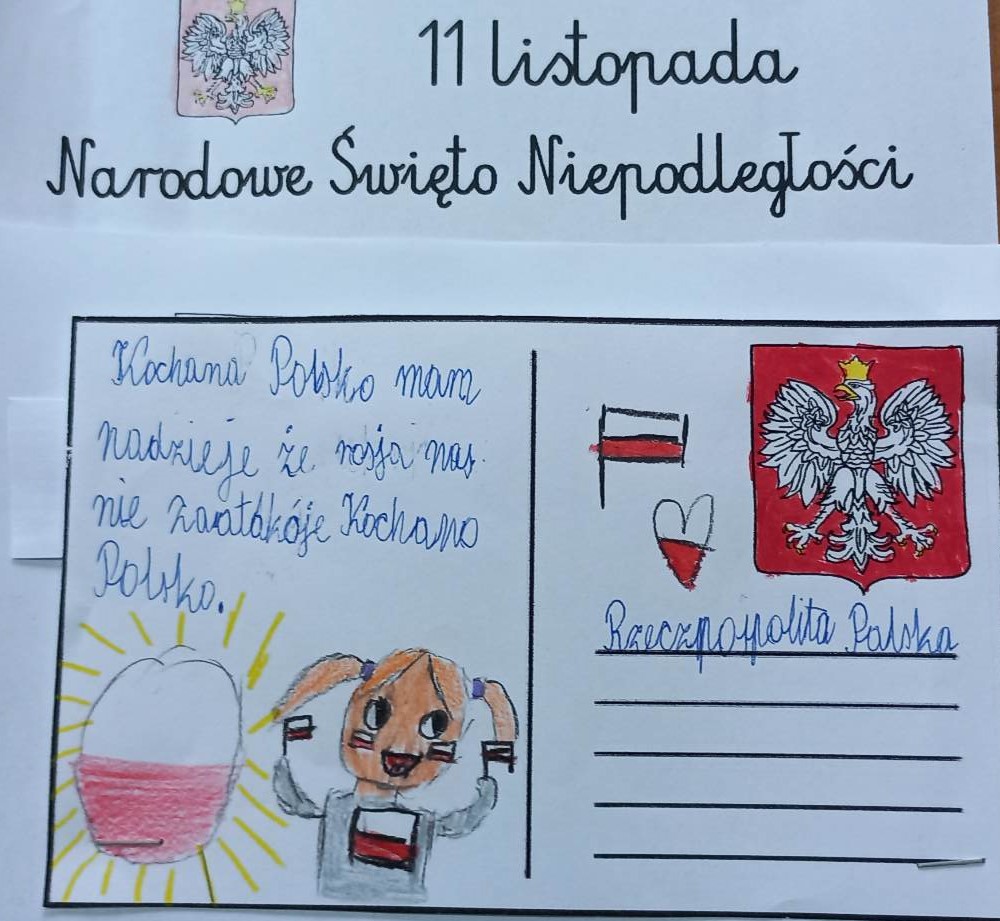 11 listopada
Narodowe Święto Niepodległości
Kochana Polsko mam
nadzieje że rosja nas
nie zaatakóje Kochano
Polsko.
Rzeczpospolita Polska